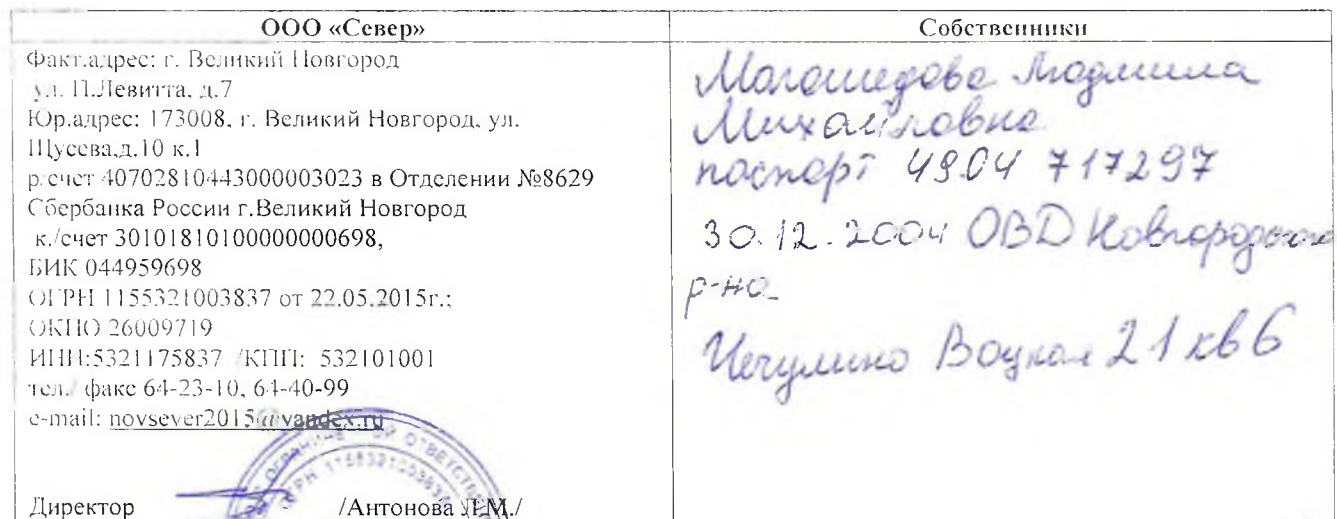 ООО «Север»
Факт.адрес: г. Великий Новгород
ул. П.Левитта, д.7
Юр.адрес: 173008, г. Великий Новгород, ул.
Щусева,д.10 к.1
р/счет 40702810443000003023 в Отделении №8629
Сбербанка России г.Великий Новгород
к./счет 30101810100000000698,
БИК 044959698
ОГРН 1155321003837 от 22.05.2015г.;
ОКПО 26009719
ИНН:5321175837 /КПП: 532101001
тел./ факс 64-23-10, 64-40-99
e-mail: novsever2015@yandex.ru
Директор /Антонова Л.М./
Собственники
Людмила
Михайловна
паспорт 4904 717297
30.12.2004 ОВД Новгородского
р-на
Чечулино Воцкая 21 кв 6